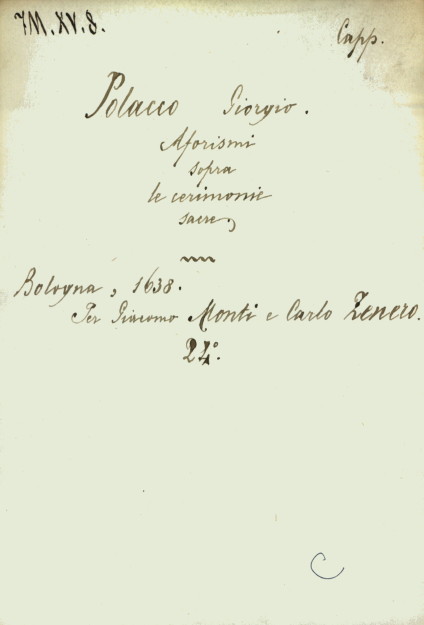 7M.XV.8.
Capp.
Polacco Giorgio.
Aforismi
sopra
le cerimonie
sacre,
Bologna, 1638.
Per Giacomo Monti e Carlo Zenero.
24°.
C